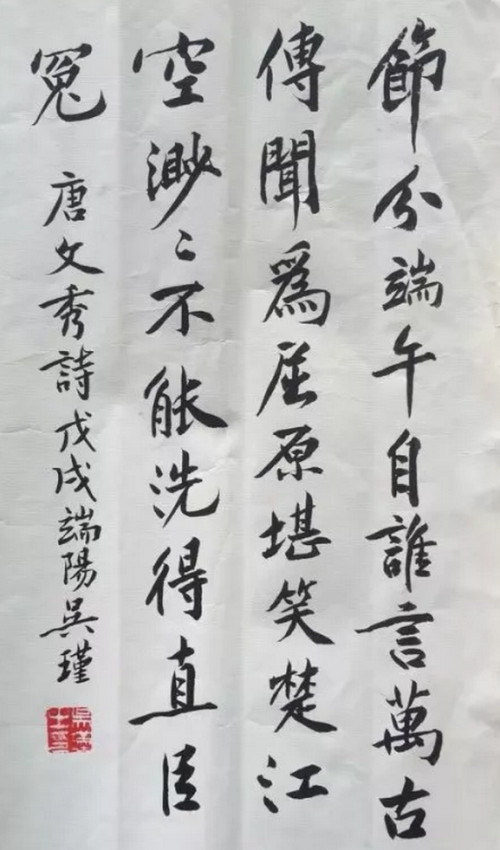 節分端午自誰言萬古
傳聞為屈原堪笑楚江
空渺〻不能洗得直臣
冤
唐文秀詩戊戌端陽吳瑾